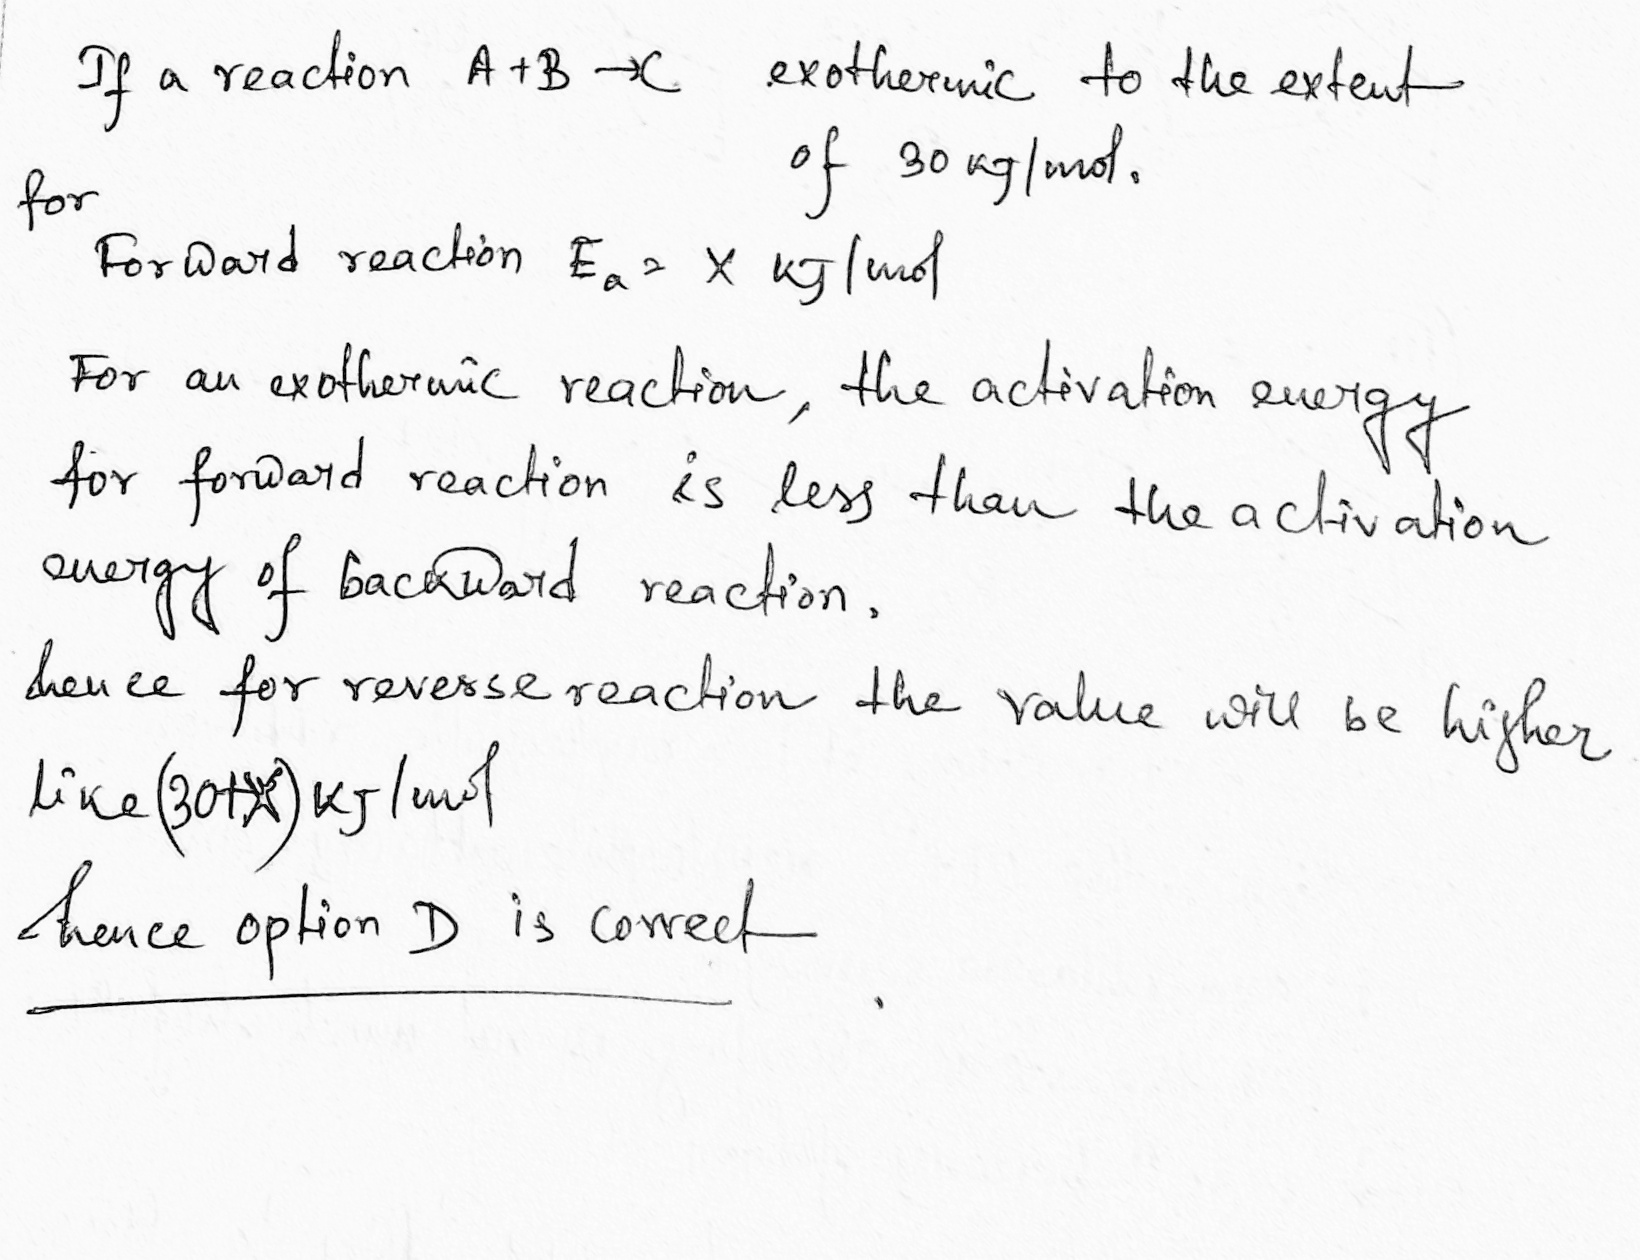 If a reaction A+B → C exothermic to the extent
of 30 kJ/mol.
for
Forward reaction Ea = X kJ/mol
For an exothermic reaction, the activation energy
for forward reaction is less than the activation
energy of backward reaction.
hence for reverse reaction the value will be higher
like (30+X) kJ/mol
hence option D is correct